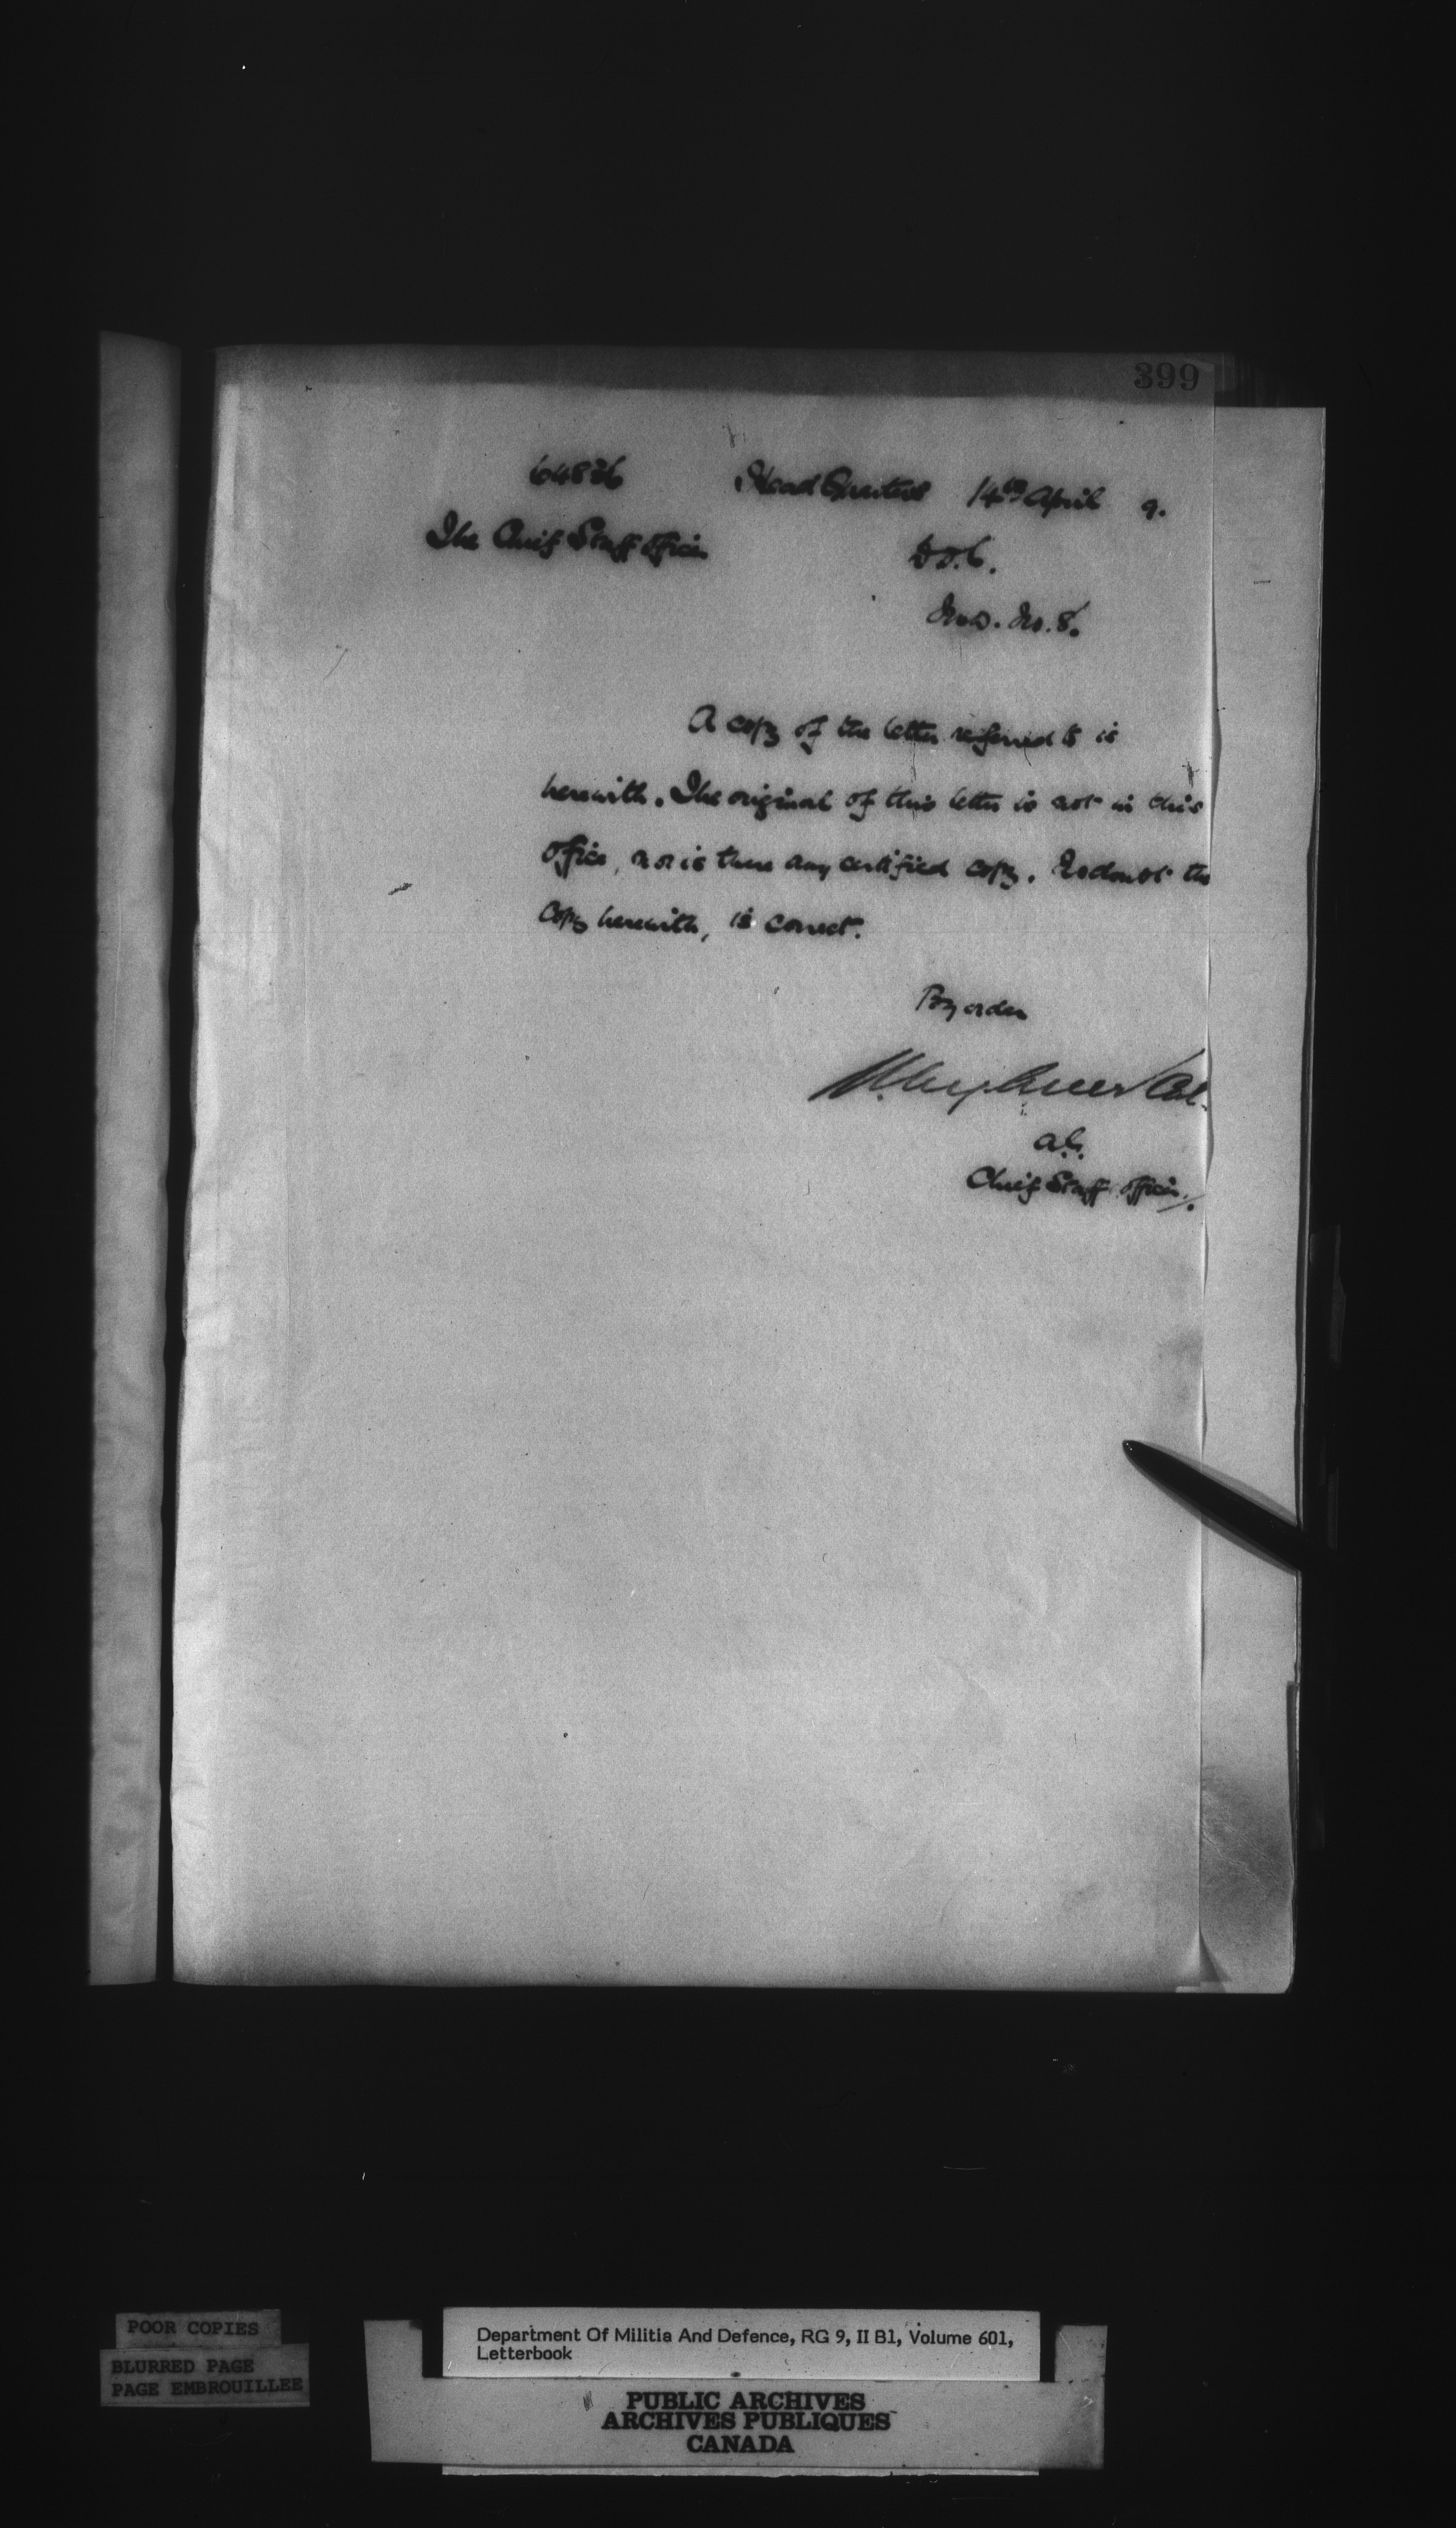 399
64836 Head Quarters 14th April 9.
The Chief Staff Officer
D.O.C.
M.D. No. 8.
A copy of the letter referred to is
herewith. The original of this letter is not in this
office, nor is there any certified copy. No doubt the
copy herewith, is correct.
By order
Col.
a.C.
Chief Staff Officer.
POOR COPIES
BLURRED PAGE
PAGE EMBROUILLEE
Department Of Militia And Defence, RG 9, II B1, Volume 601,
Letterbook
PUBLIC ARCHIVES
ARCHIVES PUBLIQUES
CANADA